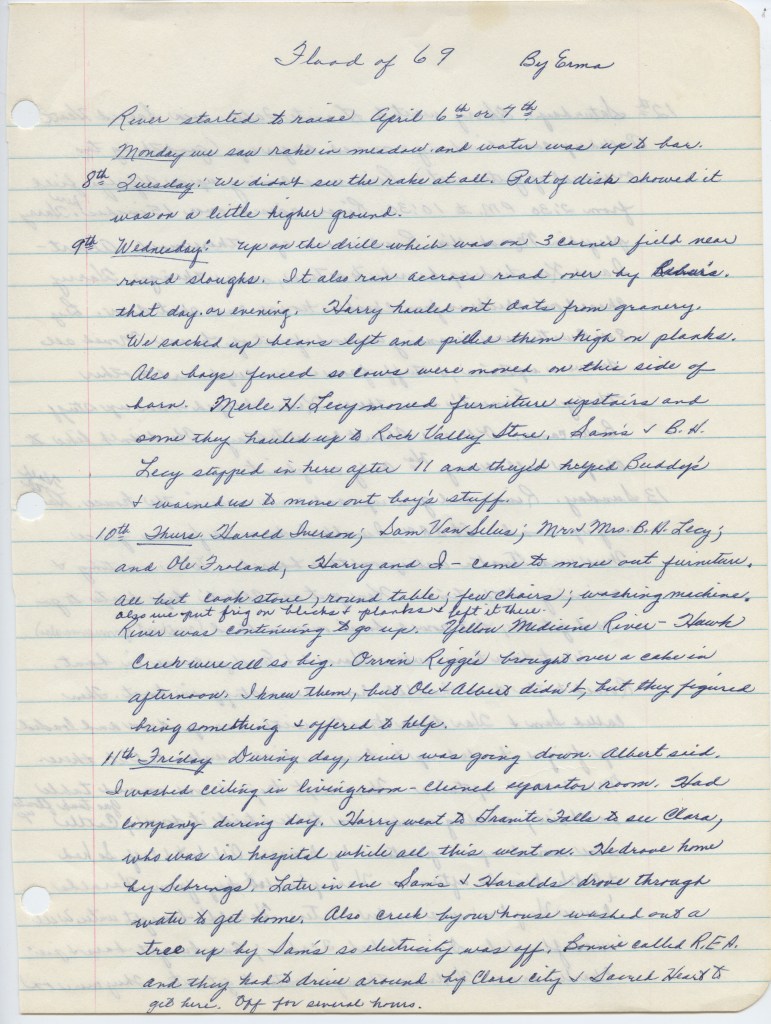 Flood of 69 By Erma
River started to raise April 6th or 7th
Monday we saw rake in meadow and water was up to bar.
8th Tuesday: We didn't see the rake at all. Part of disk showed it
was on a little higher ground.
9th Wednesday: up on the drill which was on 3 corner field near
round sloughs. It also ran accross road over by
that day or evening. Harry hauled out oats from granery.
We sacked up beans left and pilled them high on planks.
Also boys fenced so cows were moved on this side of
barn. Merle H. Lecy moved furniture upstairs and
some they hauled up to Rock Valley Store. Sam's & B.H.
Lecy stopped in here after 11 and they'd helped Buddy's
& warned us to move out boy's stuff.
10th Thurs. Harald Iverson; Sam Van Selus; Mr. & Mrs. B.H. Lecy;
and Ole Froland, Harry and I - came to move out furniture.
All but cook stove, round table; few chairs; washing machine.
also we put frig on blocks & planks & left it there.
River was continuing to go up. Yellow Medicine River - Hawk
Creek were all so big. Orvin Rigge's brought over a cake in
afternoon. I knew them, but Ole & Albert didn't, but they figured
bring something & offered to help.
11th Friday During day, river was going down Albert said.
I washed ceiling in livingroom - cleaned separator room. Had
company during day. Harry went to Granite Falls to see Clara,
who was in hospital while all this went on. He drove home
by Sebrings. Later in eve Sam's & Haralds drove through
water to get home. Also creek by our house washed out a
tree up by Sam's so electricity was off. Bonnie called R.E.A.
and they had to drive around by Clara City & Sacred Heart to
get here. Off for several hours.